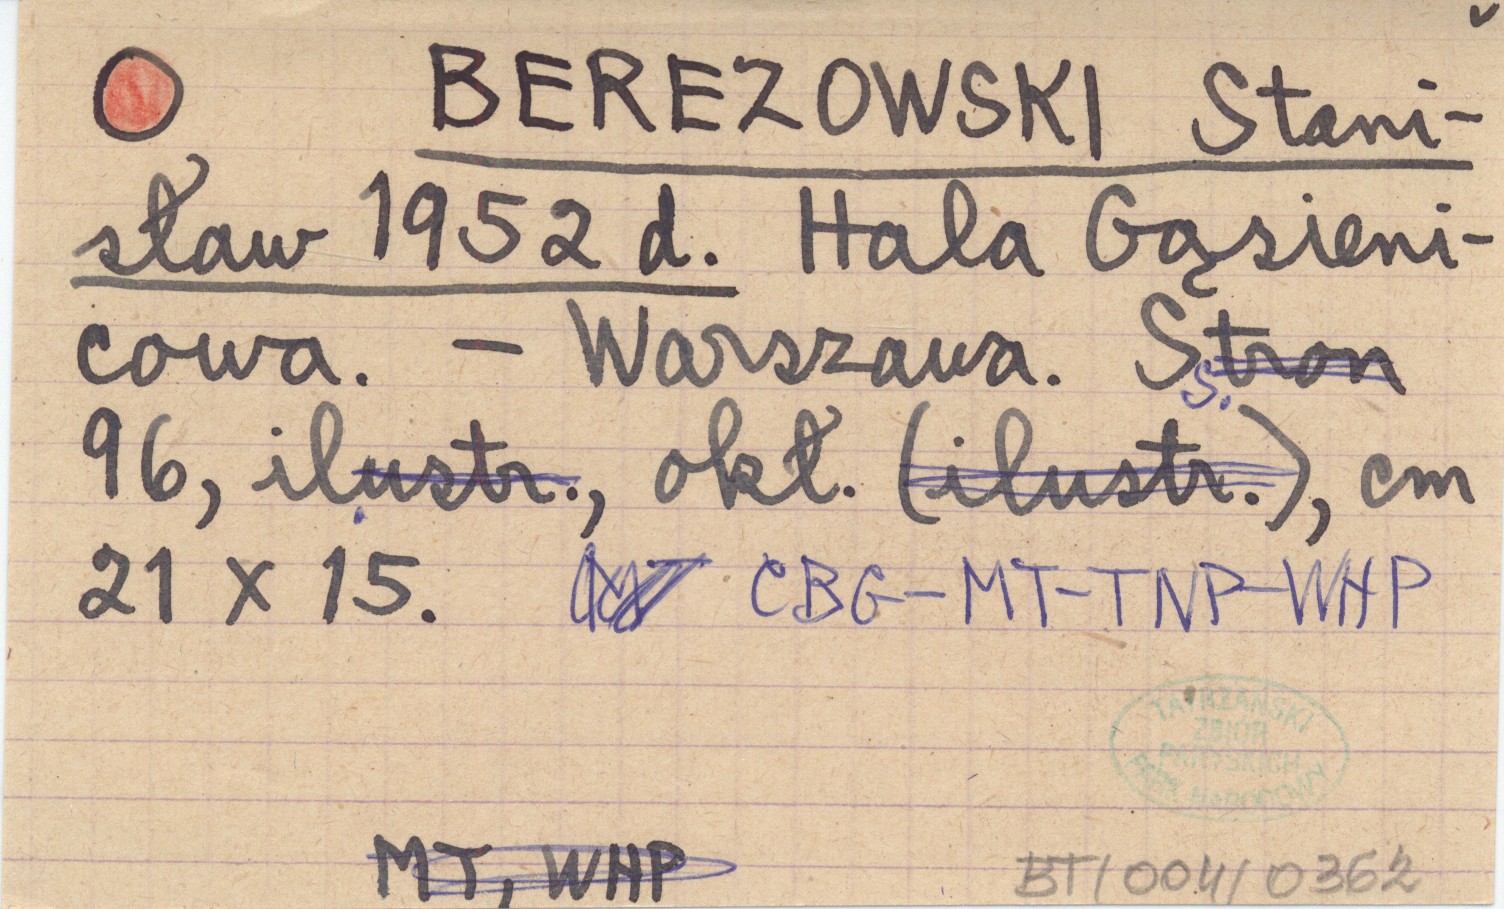 BEREZOWSKI Stani-
sław 1952 d. Hala Gąsieni-
cowa. – Warszawa. Stron
s.
96, ilustr., okł. (ilustr.), cm
21 x 15. CBG-MT-TNP-WHP
TATRZAŃSKI
ZBIÓR
PARYSKICH
PARK NARODOWY
MT, WHP
BT/004/0362